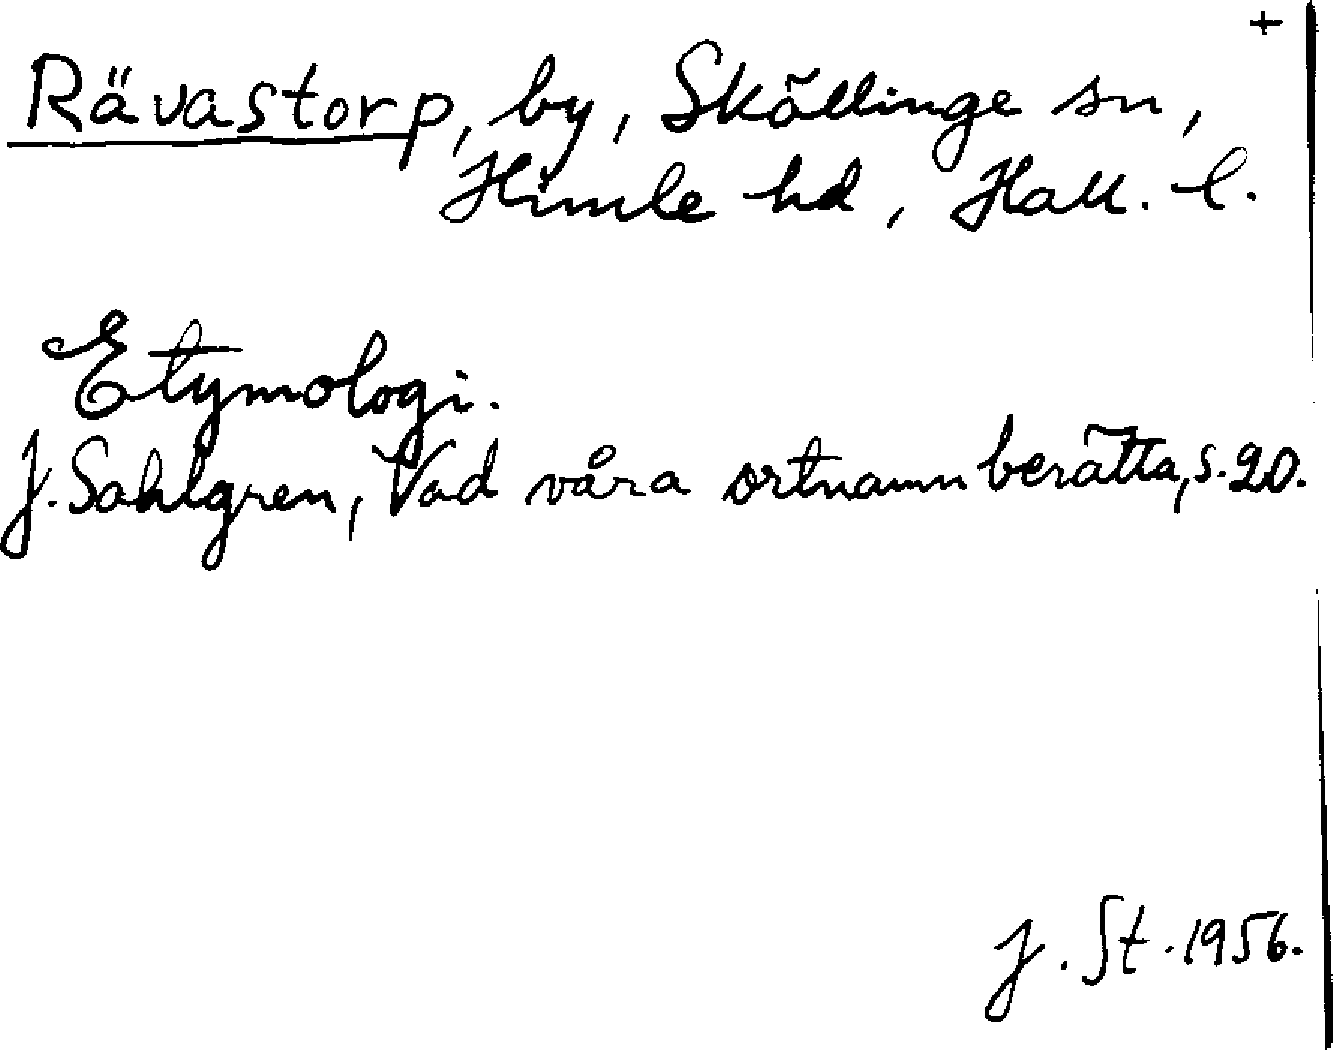 +
Rävastorp, by, Skällinge sn,
Himle hd, Hall. l.
Etymologi.
J. Sahlgren, Vad våra ortnamn berätta, s. 20.
J. St. 1956.